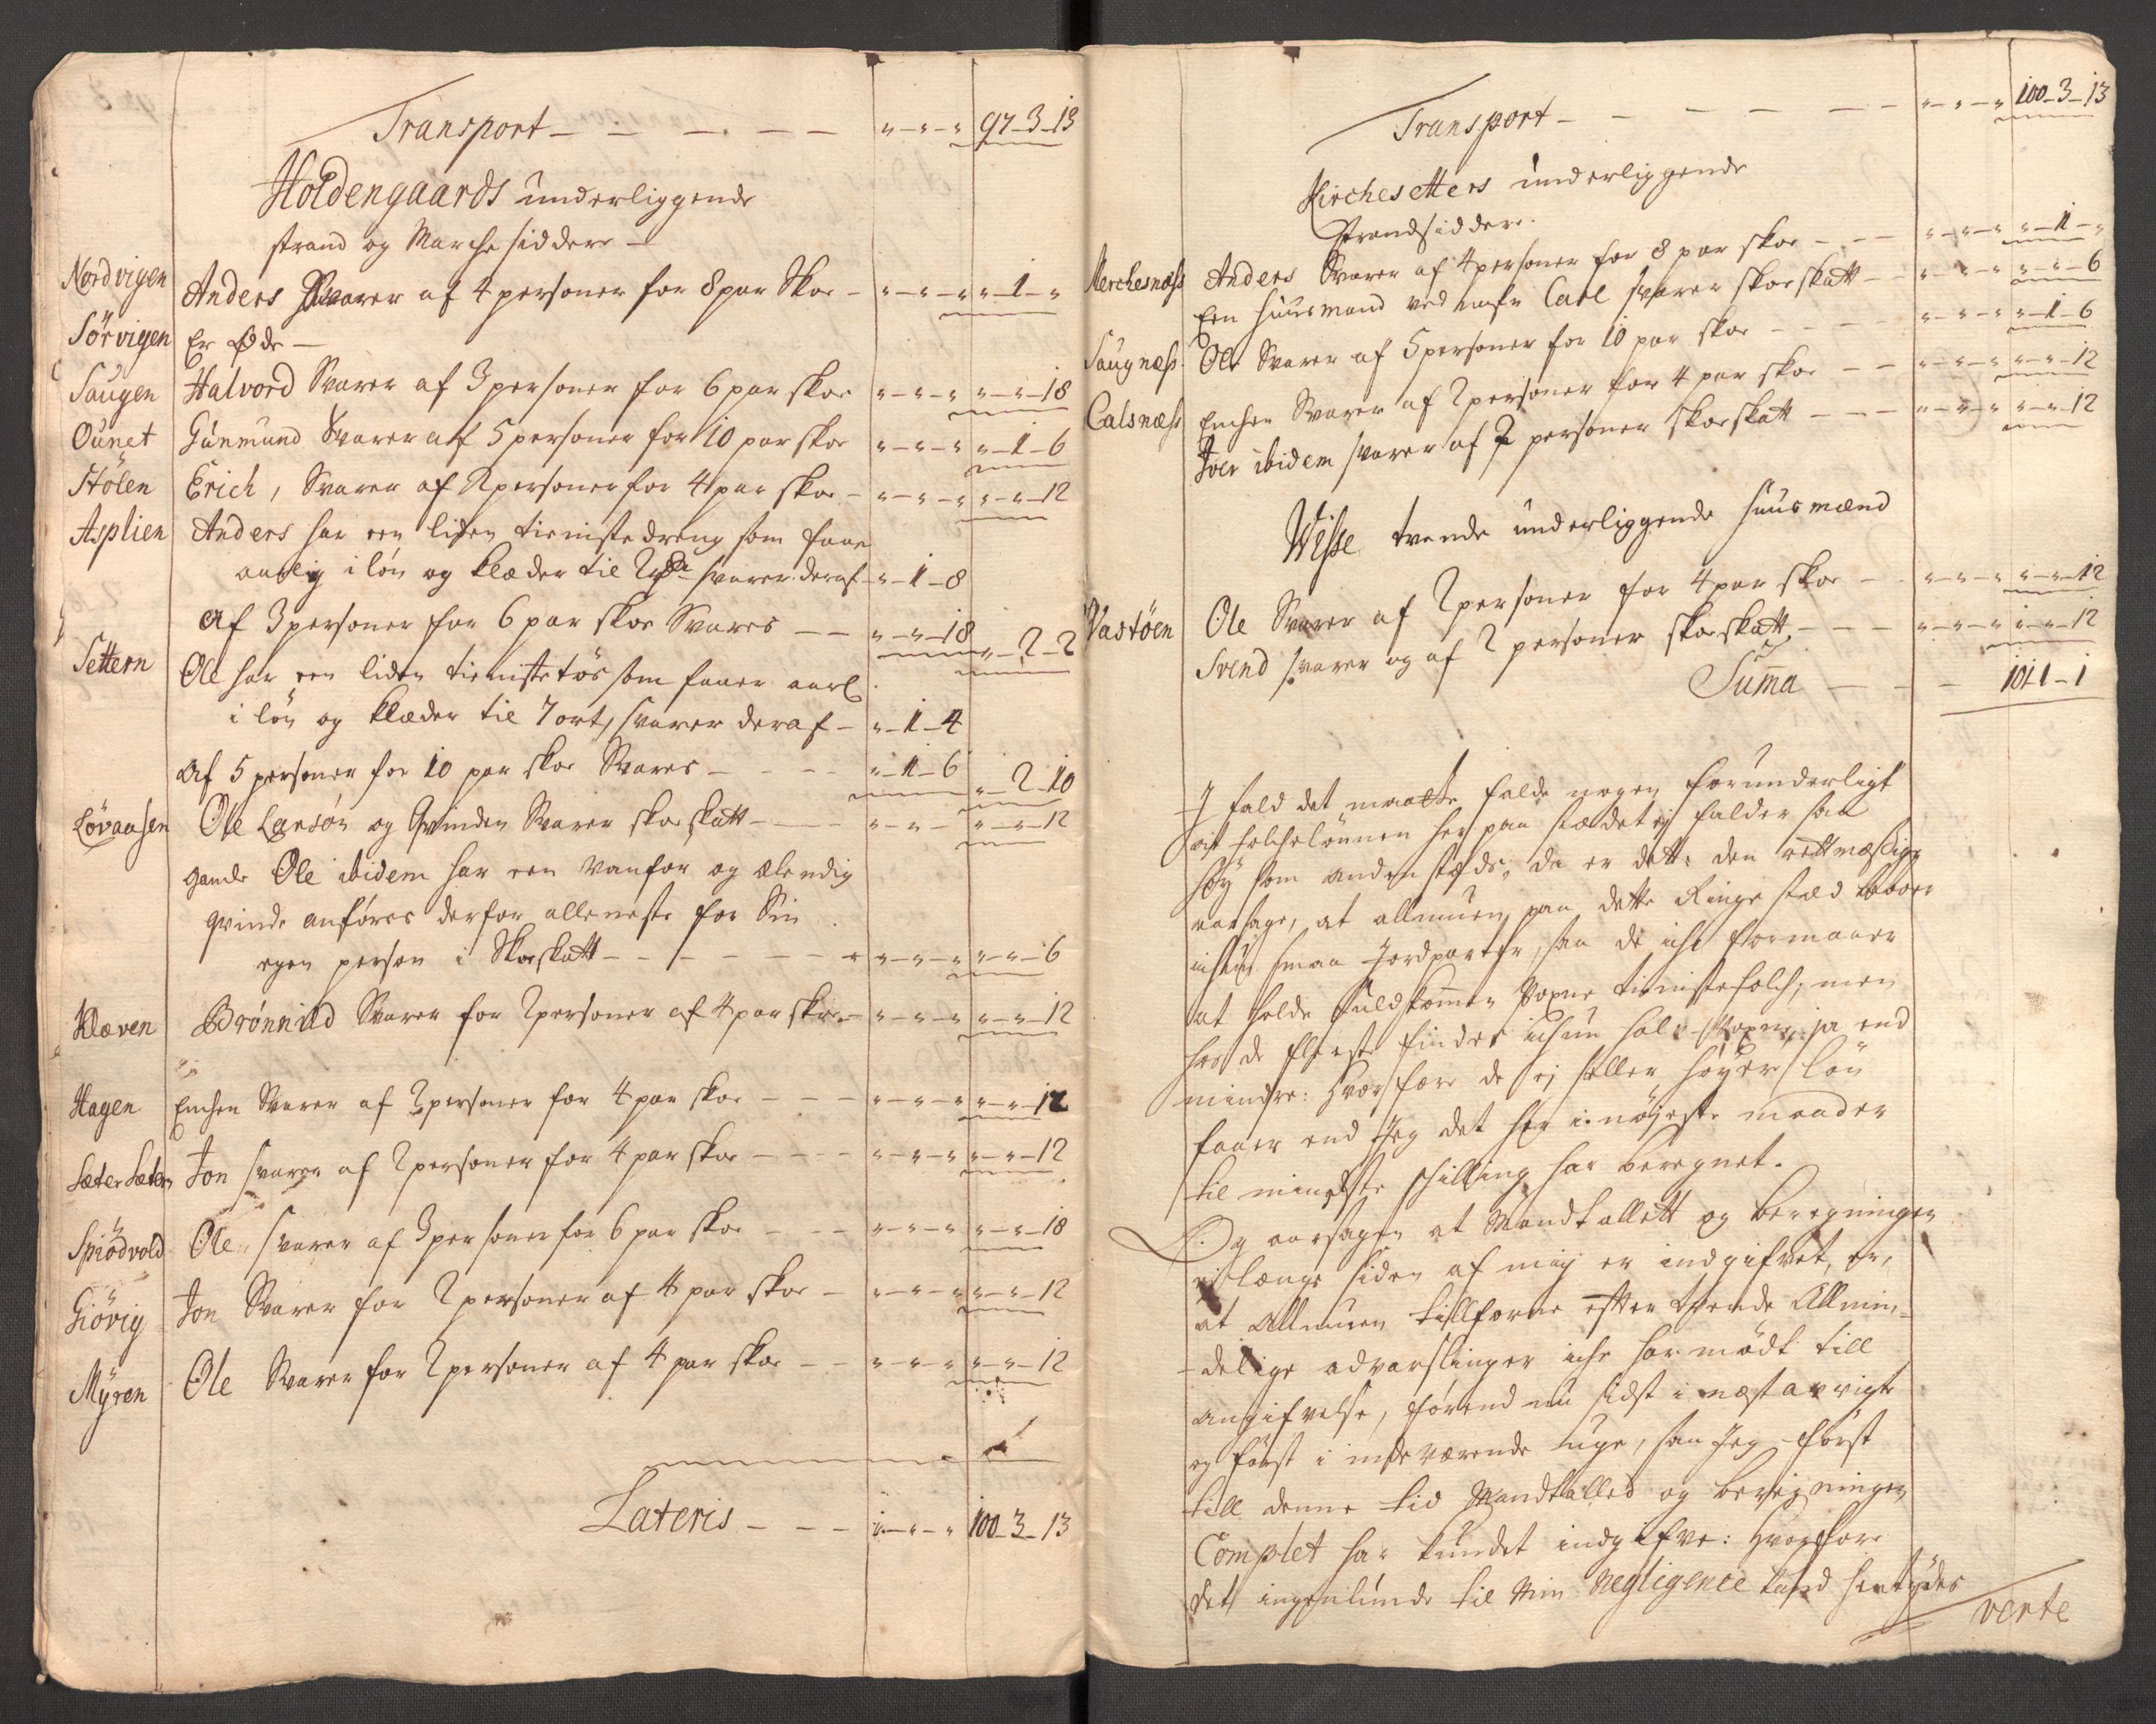 Transport — — — — — "—"—" 97–3–13
Holdengaards underliggende
strand og Marche siddere —
Nordvigen Anders Svarer af 4 personer for 8 par Skoe – "—"—" "–1–"
Sörvigen Er Øde —
Saugen Halvord Svarer af 3 personer for 6 par skoe "—"—" "—"–18
Ounet Gunmund Svarer af 5 personer for 10 par skoe "—"—" "–1–6
Stölen Erich, Svarer af 2 personer for 4 par skoe – "—"—" "—"–12
Asplien Anders har een liden tieniste dreng som faaer
aarlig i lön og klæder til 2 rdr svarer deraf – "–1–8
Af 3 personer for 6 par skoe Svares — — "—"–18 "–2–2
Settern Ole har een liden tieniste tös som faaer aarl.
i lön og klæder til 7 ort, svarer deraf – "–1–4
Af 5 personer for 10 par skoe Svares — — — "–1–6 "–2–10
Lövaasen Ole Larsön og Qvinden Svarer skoeskatt — — "—"— "—"–12
gamle Ole ibidem har een vanför og elendig
qvinde anföres derfor alleneste for Sin
egen person i Skoeskatt — — — — — "—"—" "—"–6
Klæven Brönnild Svarer for 2 personer af 4 par skoe – "—"—" "—"–12
Hagen Enchen Svarer af 2 personer for 4 par skoe — — — "—"—" "—"–12
Sæter Sætern Jon svarer af 2 personer for 4 par skoe — — — "—"—" "—"–12
Spiödvold Ole svarer af 3 personer for 6 par skoe — — — "—"—" "—"–18
Giövig Jon Svarer for 2 personer af 4 par skoe — "—"—" "—"–12
Myren Ole Svarer for 2 personer af 4 par skoe — — "—"—" "—"–12
Lateris — — — "—"—" 100–3–13
Transport — — — — — "—"—" 100–3–13
Kirchesetters underliggende
Strandsiddere.
Merchesnæss Anders Svarer af 4 personer for 8 par skoe — — — "—"—" "–1–"
Een huusmand ved nafn Carl svarer skoeskatt — "—"—" "—"–6
Saugnæss Ole Svarer af 5 personer for 10 par skoe — — — "—"—" "–1–6
Calsnæss Enchen Svarer af 2 personer for 4 par skoe — — "—"—" "—"–12
Iver ibidem svarer af 2 personer skoeskatt — — — "—"—" "—"–12
Wesse trende underliggende huusmænd
Vastöen Ole Svarer af 2 personer for 4 par skoe — "—"—" "—"–12
Svend svarer og af 2 personer skoeskatt — — — "—"—" "—"–12
Suma — — — 101–1–1
I fald det maatte falde nogen forunderligt
at folchelönnen her paa stædet ej falder saa
höy som andenstæds, da er dette den rettmæssige
aarsage, at allmuen paa dette Ringe stæd boer
ichun smaa Jordparter, saa de iche formaaer
at holde fuldkommen voxne tienistefolch; men
hos de fleeste findes ichun halv voxne, ja end
mindre: hvorfore de ej heller höyer lön
faaer end Jeg det her i nöjeste maader
til mindste schilling har beregnet.
Og aarsagen at Mandtallett og beregningen
ej længe siden af mig er indgifvet, er,
at Allmuen tillforne efter trende Allmin-
delige advarslinger iche har mödt till
angifvelse, förend nu sidst i næst
og först i inde værende uge, saa Jeg först
till denne tid Mandtallet og beregningen
Complet har kundet indgifve: hvorfore
det ingenlunde til Min Negligence kand hentydes
verte